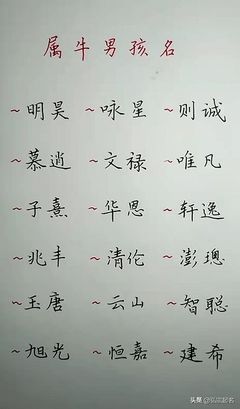 属牛男孩名
~明昊 ~咏星 ~则诚
~慕逍 ~文禄 ~唯凡
~子熹 ~华恩 ~轩逸
~兆丰 ~清伦 ~澎璁
~玉唐 ~云山 ~智聪
~旭光 ~恒嘉 ~建希
头条 @弘宗起名